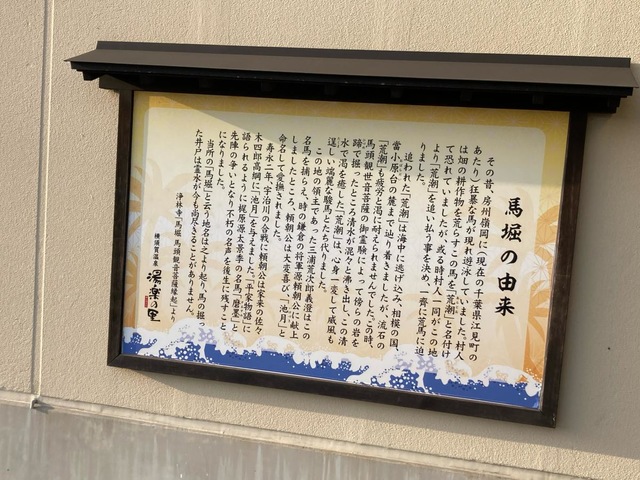 馬堀の由来
その昔、房州嶺岡に(現在の千葉県江見町の
あたり)狂暴な馬が現れ遊泳していました。村人
は畑の耕作物を荒らすこの馬を「荒潮」と名付け
て恐れていましたが、或る時村人一同がこの地
より「荒潮」を追い払う事を決め、一斉に荒馬に迫
りました。
追われた「荒潮」は海中に逃げ込み、相模の国、
當小原台の麓まで辿り着きましたが、流石の
「荒潮」も疲労と渇に耐えられませんでした。この時、
馬頭観世音菩薩の御霊験によって傍らの岩を
蹄で掘ったところ清水が滾々と沸き出し、この清
水で渇を癒した「荒潮」は、心身一変して威風も
逞しい端麗な駿馬とたち代りました。
この地の領主であった三浦荒次郎義澄はこの
名馬を捕らえ、時の鎌倉の将軍源頼朝公に献上
しましたところ、頼朝公は大変喜び「池月」と
命名して愛撫されました。
寿永二年、宇治川の合戦に頼朝公は家来の佐々
木四郎高綱に「池月」を与えました。「平家物語」に
語られるように梶原源太景季の名馬「磨墨」と
先陣の争いとなり不朽の名声を後生に残すこと
になりました。
当所の「馬堀」と云う地名は之より起り、馬の掘っ
た井戸は霊水が今も尚尽きることがありません。
浄林寺「馬堀 馬頭観音菩薩縁起」より
横須賀温泉
湯楽の里